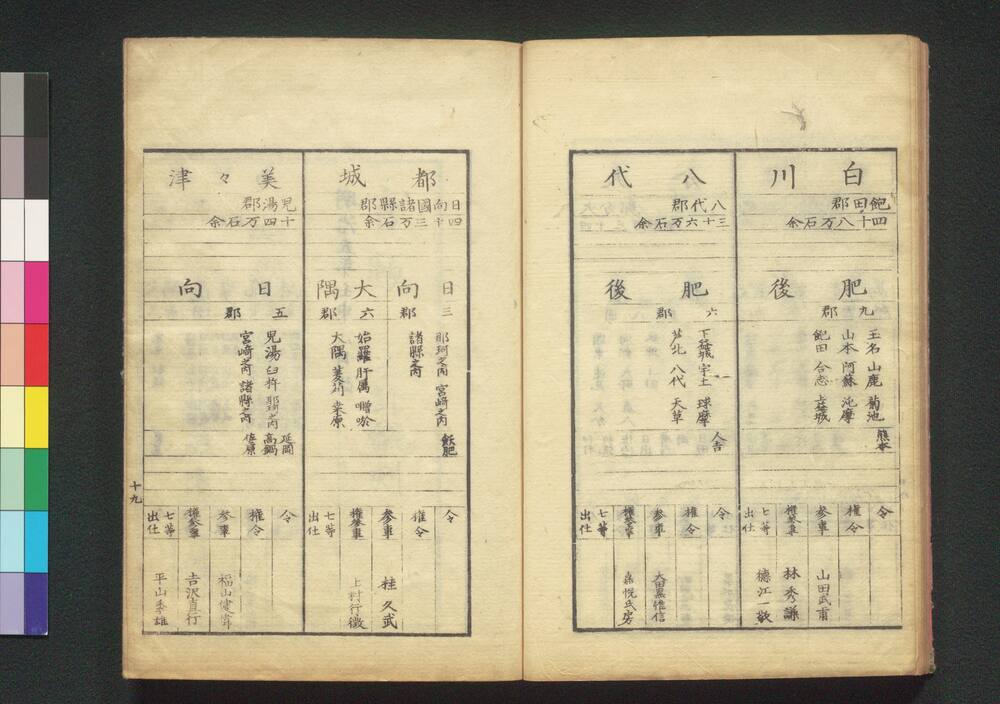 白川
飽田郡
四十八万石余
肥後
九郡
玉名 山鹿 菊池
山本 阿蘇 詫摩
飽田 合志 上益城
熊本
令
権令
参事 山田武甫
権参事 林秀謙
七等出仕 徳江一敬
八代
八代郡
三十六万石余
肥後
六郡
下益城 宇土 球摩
芦北 八代 天草
人吉
令
権令
参事 太田黒惟信
権参事 嘉悦氏房
七等出仕
都城
日向國諸縣郡
四十三万石余
日向 大隅
三郡 六郡
那珂之内 宮崎之内
諸縣之内
飫肥
姶羅 肝属 囎唹
大隅 菱刈 桑原
令
権令
参事 桂久武
権参事 上村行徴
七等出仕
美々津
児湯郡
十四万石余
日向
五郡
児湯 臼杵 那珂之内
宮崎之内 諸縣之内
延岡
高鍋
佐原
令
権令
参事 福山健偉
権参事 吉沢直行
七等出仕 平山季雄
十九